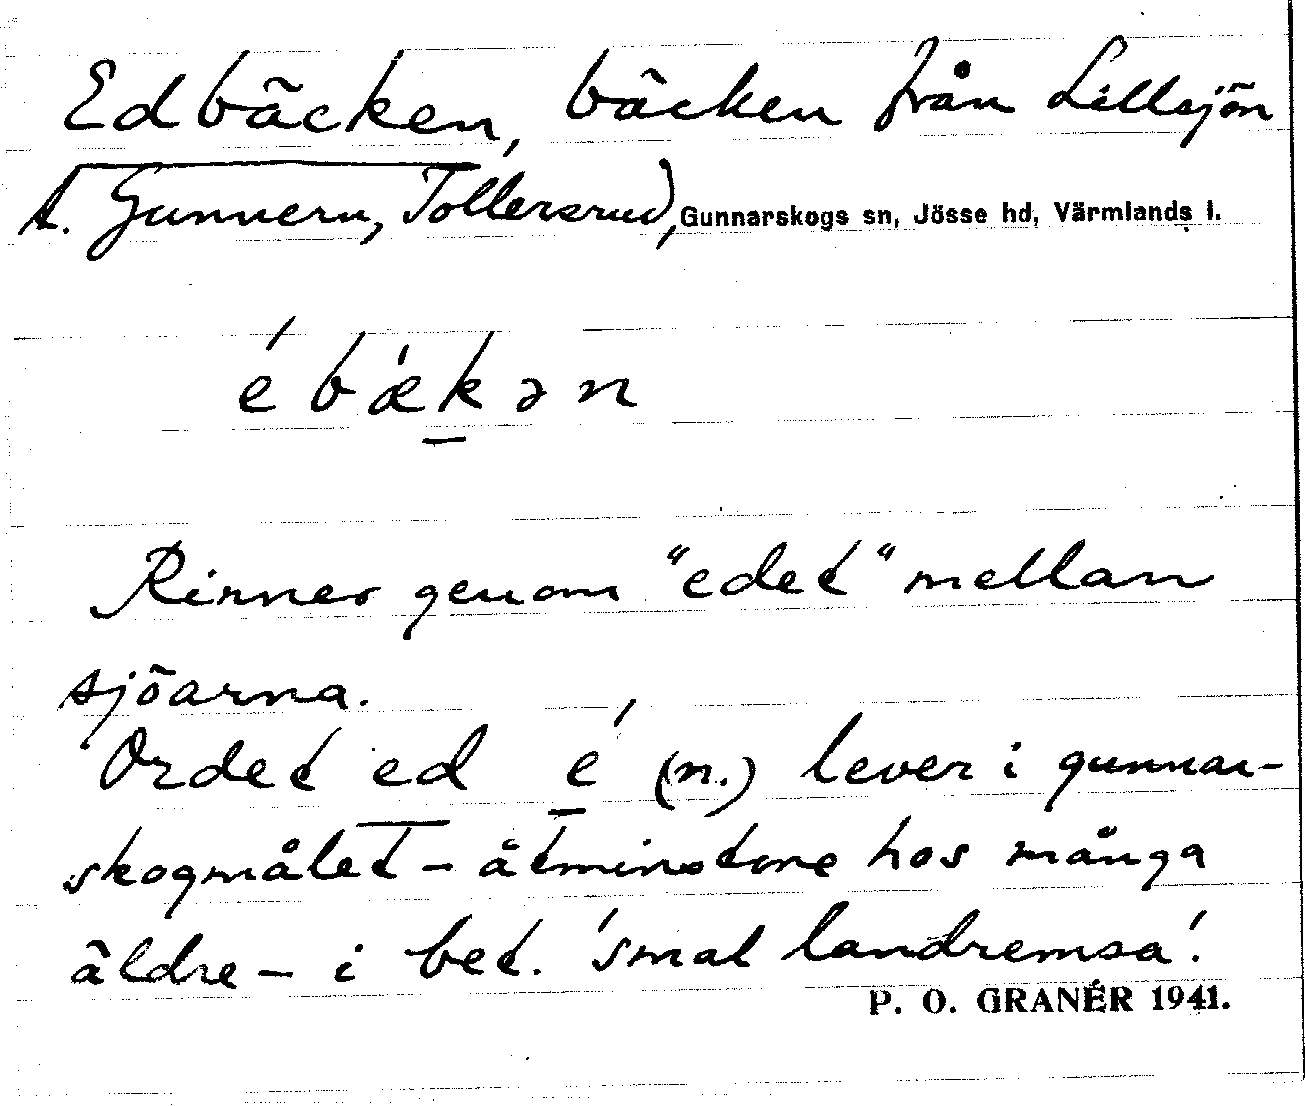 Edbäcken, bäcken från Lillsjön
t. Gunnern, Tollersrud, Gunnarskogs sn, Jösse hd, Värmlands l.
é bǽkən
Rinner genom "edet" mellan
sjöarna.
Ordet ed é (n.) lever i gunnar-
skogmålet – åtminstone hos många
äldre – i bet. 'smal landremsa'.
P. O. GRANÉR 1941.